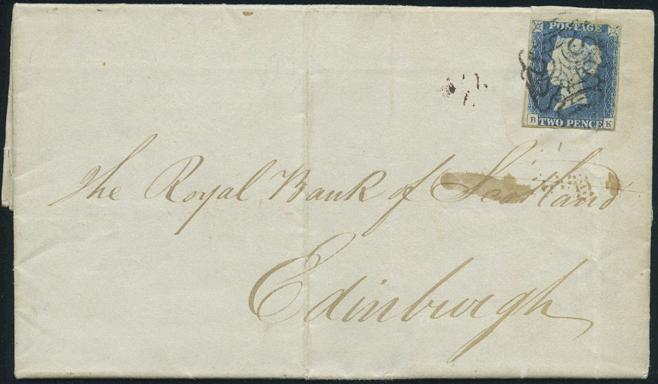 POSTAGE
B TWO PENCE K
The Royal Bank of Scotland
Edinburgh